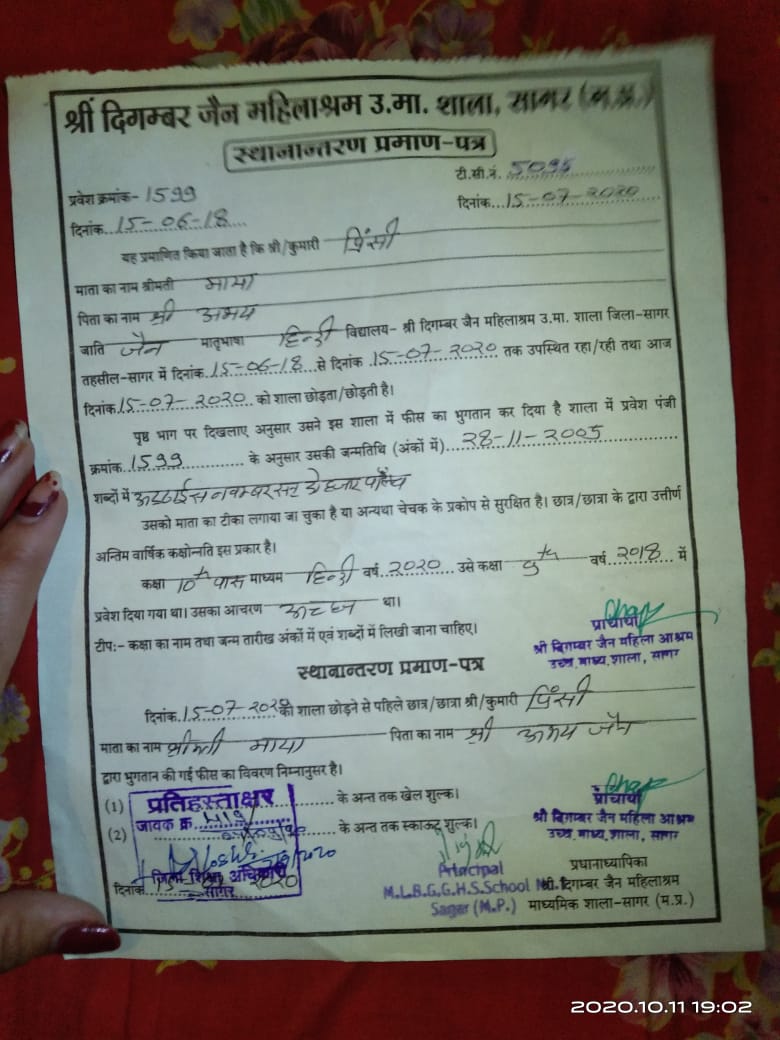 श्री दिगम्बर जैन महिलाश्रम उ.मा. शाला, सागर (म.प्र.)
स्थानान्तरण प्रमाण-पत्र
टी.सी.नं. 5095
प्रवेश क्रमांक- 1599
दिनांक...15-07-2020
दिनांक...15-06-18...
यह प्रमाणित किया जाता है कि श्री/कुमारी प्रिंसी
माता का नाम श्रीमती माया
पिता का नाम श्री अभय
जाति जैन मातृभाषा हिन्दी विद्यालय- श्री दिगम्बर जैन महिलाश्रम उ.मा. शाला जिला-सागर
तहसील-सागर में दिनांक.15-06-18...से दिनांक 15-07-2020 तक उपस्थित रहा/रही तथा आज
दिनांक 15-07-2020 को शाला छोड़ता/छोड़ती है।
पृष्ठ भाग पर दिखलाए अनुसार उसने इस शाला में फीस का भुगतान कर दिया है शाला में प्रवेश पंजी
क्रमांक.1599............ के अनुसार उसकी जन्मतिथि (अंकों में)...28-11-2005
शब्दों में अट्ठाईस नवम्बर सन् दो हजार पाँच
उसको माता का टीका लगाया जा चुका है या अन्यथा चेचक के प्रकोप से सुरक्षित है। छात्र/छात्रा के द्वारा उत्तीर्ण
अन्तिम वार्षिक कक्षोन्नति इस प्रकार है।
कक्षा 10th पास माध्यम हिन्दी वर्ष 2020 उसे कक्षा 9th वर्ष 2018 में
प्रवेश दिया गया था। उसका आचरण अच्छा था।
टीप:- कक्षा का नाम तथा जन्म तारीख अंकों में एवं शब्दों में लिखी जाना चाहिए।
प्राचार्या
श्री दिगम्बर जैन महिला आश्रम
उच्च.माध्य.शाला, सागर
स्थानान्तरण प्रमाण-पत्र
दिनांक.15-07-2020 को शाला छोड़ने से पहिले छात्र/छात्रा श्री/कुमारी प्रिंसी
माता का नाम श्रीमती माया पिता का नाम श्री अभय जैन
द्वारा भुगतान की गई फीस का विवरण निम्नानुसर है।
(1) ............ के अन्त तक खेल शुल्क।
(2) ............ के अन्त तक स्काऊट शुल्क।
प्रतिहस्ताक्षर
जावक क्र.
जिला शिक्षा अधिकारी
सागर
दिनांक 15 2020
प्राचार्या
श्री दिगम्बर जैन महिला आश्रम
उच्च.माध्य.शाला, सागर
Principal
M.L.B.G.G.H.S.School
Sagar (M.P.)
प्रधानाध्यापिका
श्री दिगम्बर जैन महिलाश्रम
माध्यमिक शाला-सागर (म.प्र.)
2020.10.11 19:02